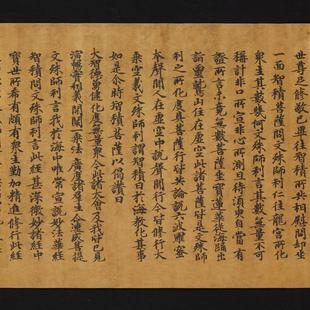 世尊足修敬已畢往智積所共相慰問却坐
一面智積菩薩問文殊師利仁往龍宮所化
衆生其數幾何文殊師利言其數無量不可
稱計非口所宣非心所測且待須臾自當有
證所言未竟無數菩薩坐寶蓮華從海踊出
詣靈鷲山住在虛空此諸菩薩皆是文殊師
利之所化度具菩薩行皆共論說六波羅蜜
本聲聞人在虛空中說聲聞行今皆修行大
乘空義文殊師利謂智積曰於海教化其事
如是尒時智積菩薩以偈讚曰
大智德勇健化度無量衆今此諸大會及我皆已見
演暢實相義開闡一乘法廣導諸衆生令速成菩提
文殊師利言我於海中唯常宣說妙法華經
智積問文殊師利言此經甚深微妙諸經中
寶世所希有頗有衆生勤加精進修行此經